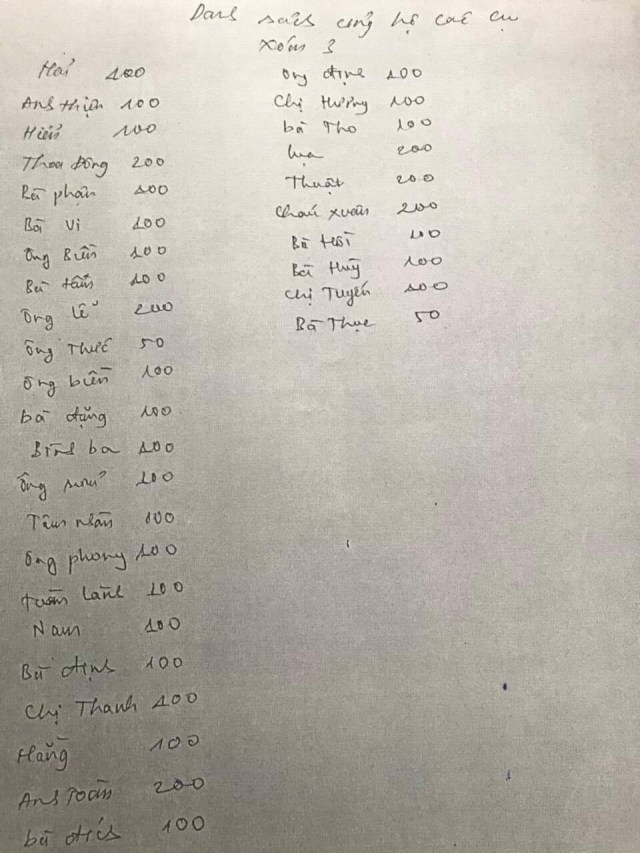 Danh sách ủng hộ các cụ
xóm 3
Hải 100
Anh thiện 100
Hiển 100
Thoa Đông 200
Bà phận 100
Bà Vi 100
Ông Biên 100
Bà tấn 100
Ông lễ 200
Ông Thức 50
Ông biền 100
bà đặng 100
Bình ba 100
Ông sửu 100
Tâm nhàn 100
Ông phong 100
tuấn Lành 100
Nam 100
Bà định 100
Chị Thanh 100
Hằng 100
Anh Toàn 200
bà đích 100
Ông định 100
Chị Hương 100
bà Tho 100
lụa 200
Thuật 200
cháu xuân 200
Bà tời 100
Bà Huỳ 100
chị Tuyến 100
Bà Thục 50